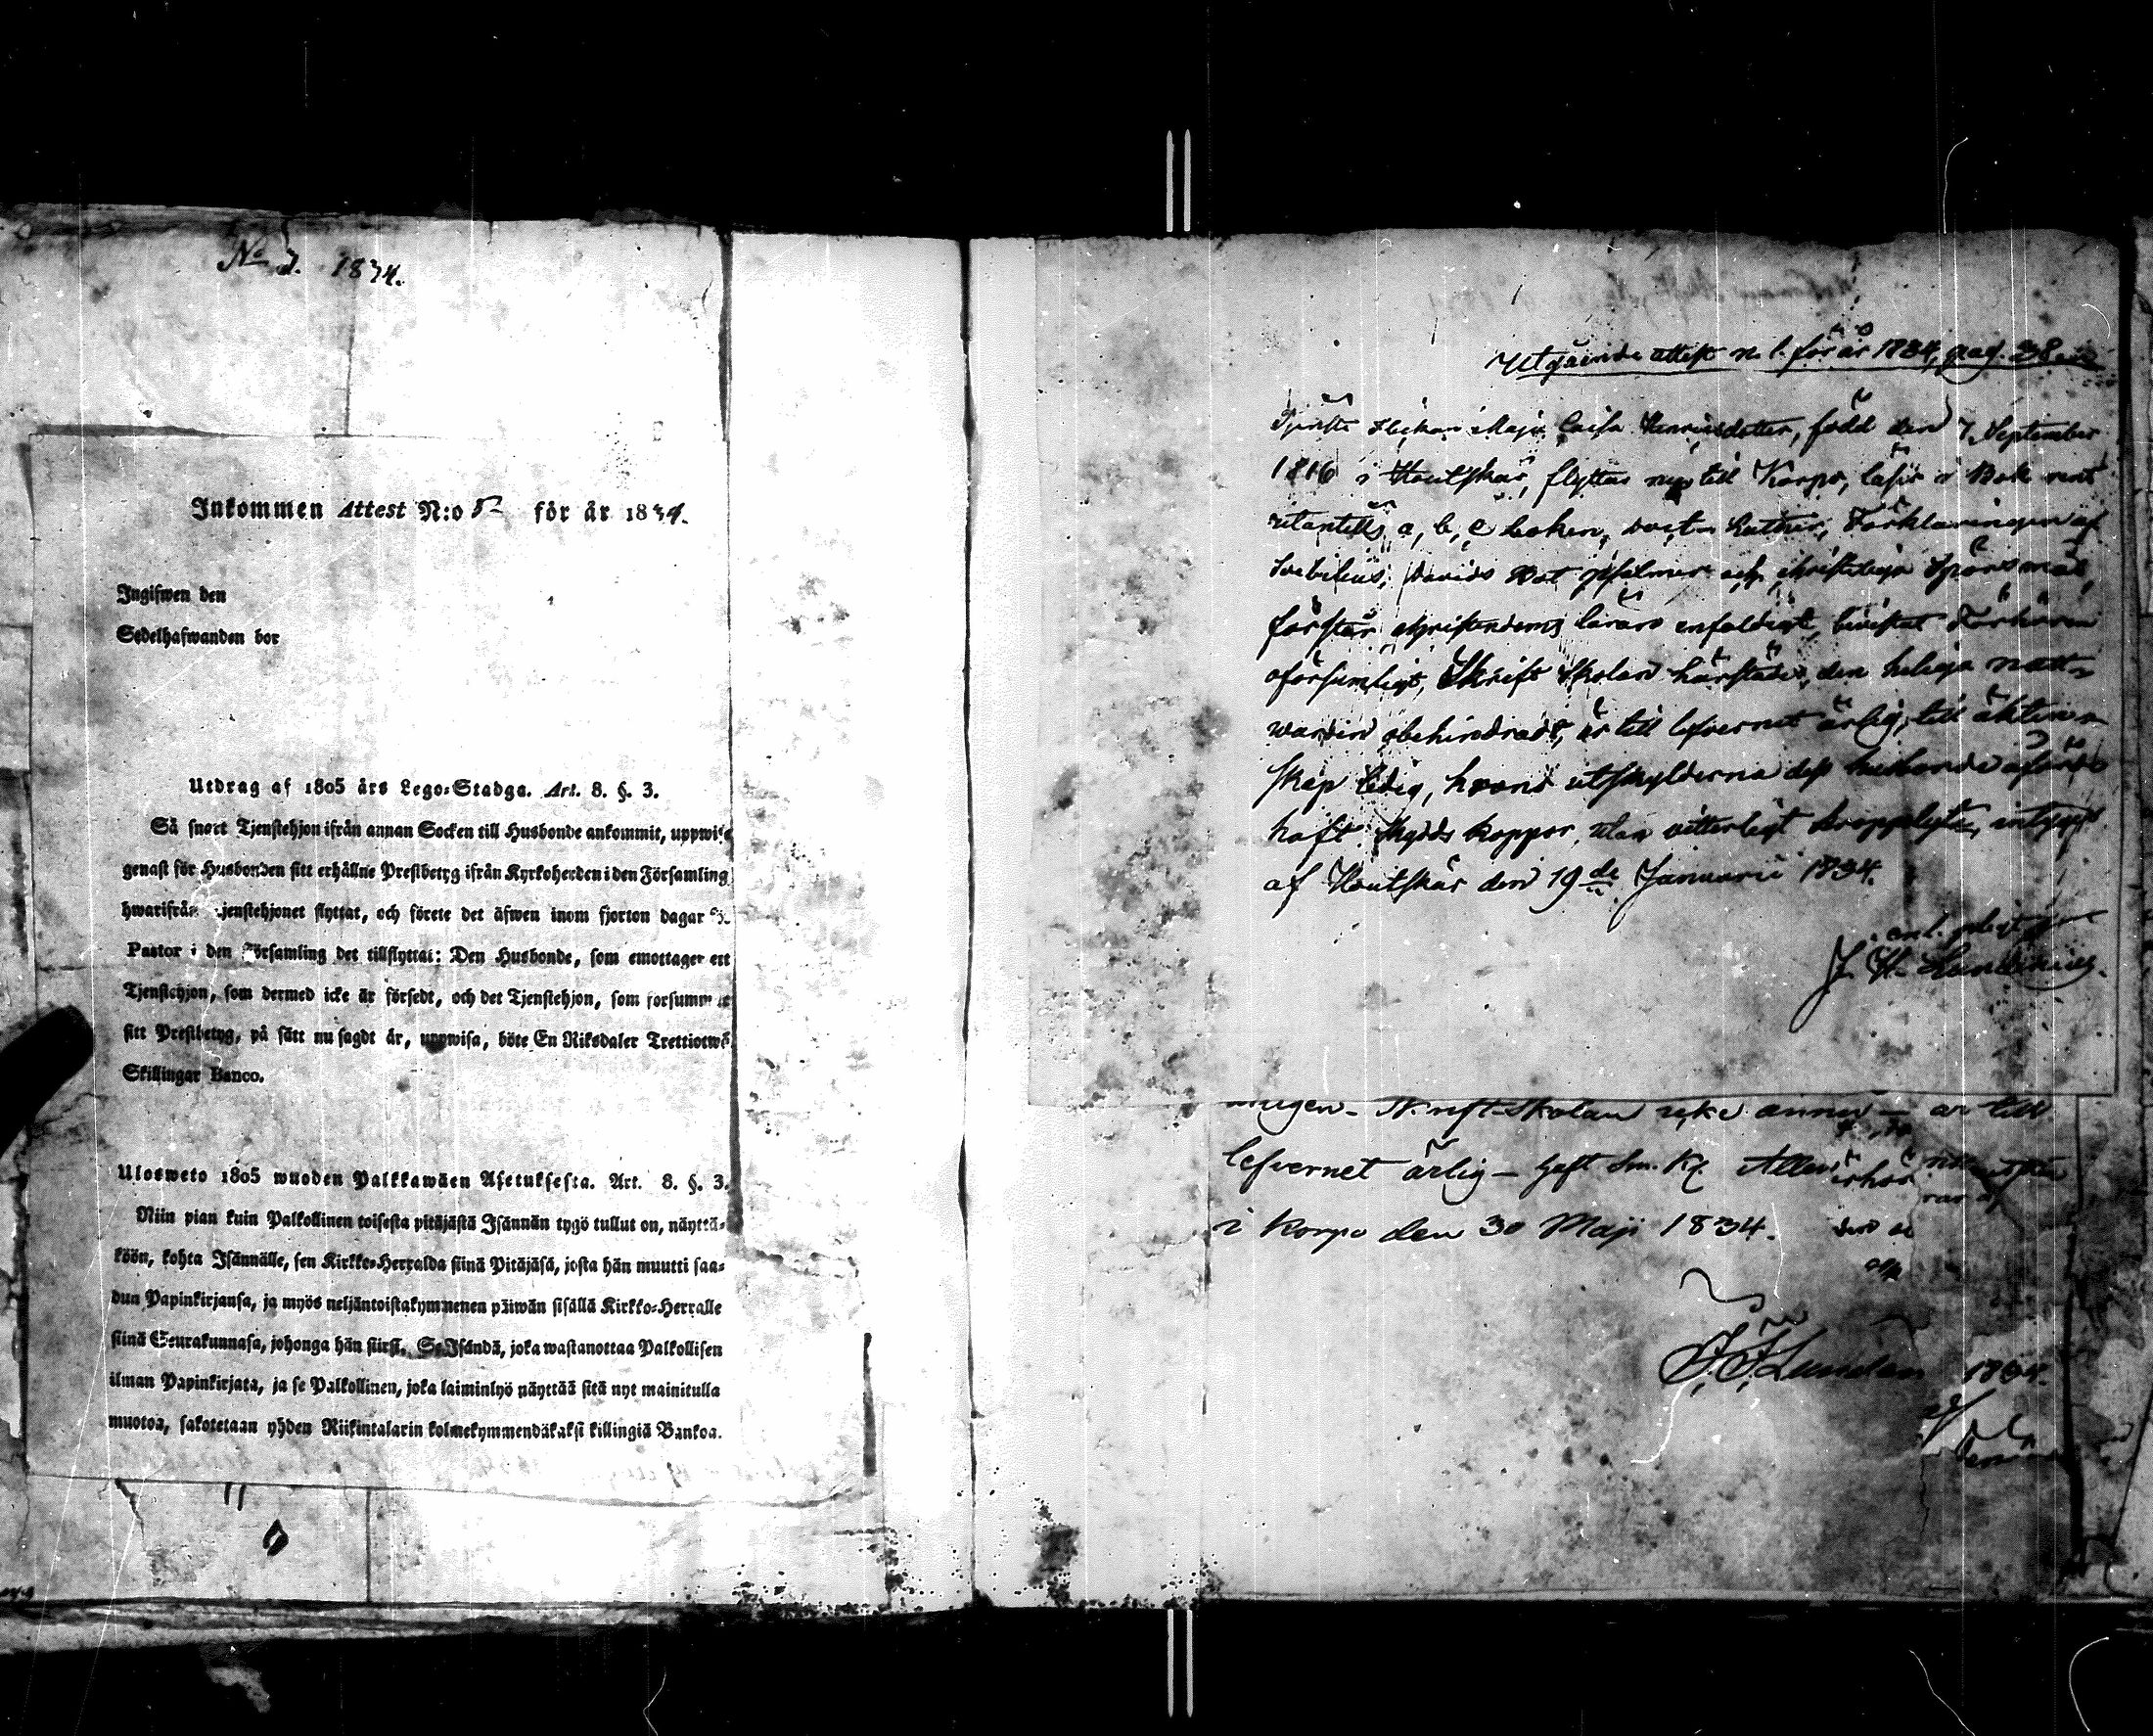 No 7. 1834.
Inkommen Attest N:o 5 för år 1834.
Ingifwen den
Sedelhafwanden bor
Utdrag af 1805 års Lego-Stadga. Art. 8. §. 3.
Så snart Tjenstehjon ifrån annan Socken till Husbonde ankommit, uppwise
genast för Husbonden sitt erhållne Prestbetyg ifrån Kyrkoherden i den Församling
hwarifrån Tjenstehjonet flyttat, och förete det äfwen inom fjorton dagar
Pastor i den Församling det tillflyttat: Den Husbonde, som emottager ett
Tjenstehjon, som dermed icke är försedt, och det Tjenstehjon, som försummar
sitt Prestbetyg, på sätt nu sagdt är, uppwisa, böte En Riksdaler Trettiotwå
Skillingar Banco.
Ulosweto 1805 wuoden Palkkawäen Asetuksesta. Art. 8. §. 3.
Niin pian kuin Palkollinen toisesta pitäjästä Isännän tygö tullut on, näyttä-
köön, kohta Isännälle, sen Kirkko-Herralda siinä Pitäjäsä, josta hän muutti saa-
dun Papinkirjansa, ja myös neljäntoistakymmenen päiwän sisällä Kirkko-Herralle
siinä Seurakunnasa, johonga hän siirsi. Se Isändä, joka wastanottaa Palkollisen
ilman Papinkirjata, ja se Palkollinen, joka laiminlyö näyttää sitä nyt mainitulla
muotoa, sakotetaan yhden Riikintalarin kolmekymmendäkaksi killingiä Bankoa.
Utgående attest n. 1. för år 1834, pag. 38
Flickan Maja Caisa Henricsdotter, född den 7 September
1816 i Houtskär, flyttar nu till Korpo, läser i Bok rent
utantill a, b, c boken, Förklaringen af
Svebilius, Davids Bot psalmer och christeliga Spörsmål,
förstår christendoms läran enfaldigt, bevistat Förhören
oförsumligt, Skrift Skolan härstädes, den heliga natt-
warden obehindradt, är till lefvernet ärlig, till äkten-
skap ledig, hvars utskylderna dess husbonde
haft Skydds koppor, utan vitterligt kroppslyte, intygas
af Houtskär den 19de Januarii 1834.
J. H.
Skrift-Skolan icke ännu - är till
lefvernet ärlig - haft Sm. Kp.
i Korpo den 30 Maji 1834.
1834.